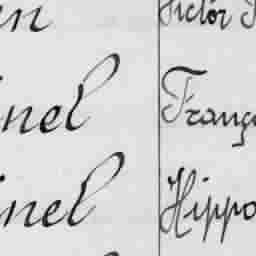 en Victor
nel Franç
nel Hippo